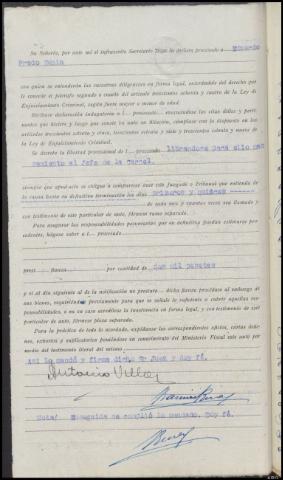 Su Señoría, por ante mí el infrascrito Secretario Dijo: Se declara procesado a Eduardo
Prado
con quien se entenderán las sucesivas diligencias en forma legal, enterándole del derecho que
le concede el párrafo segundo o cuarto del artículo trescientos ochenta y cuatro de la Ley de
Enjuiciamiento Criminal, según fuere mayor o menor de edad.
Recíbase declaración indagatoria a l procesado
artículos trescientos ochenta y ocho, trescientos ochenta y siete y trescientos noventa de la
Ley de Enjuiciamiento Criminal.
Se decreta la libertad provisional de l procesado librandose para ello man
damiento al Jefe de la Carcel.
siempre que apud-acta se obligue a comparecer ante este Juzgado o Tribunal que entienda de
la causa hasta su definitiva terminación los días primeros y quince
de cada mes y cuantas veces sea llamado y
con testimonio de este particular de auto, fórmese ramo separado.
Para asegurar las responsabilidades pecuniarias que en definitiva puedan estimarse pro-
cedentes, hágase saber a l procesado
prest fianza por cantidad de dos mil pesetas
y si al día siguiente al de la notificación no prestare dicha fianza procédase al embargo de
sus bienes, requiriéndole previamente para que señale lo suficiente a cubrir aquellas res-
ponsabilidades, o en su caso acredítese la insolvencia en forma legal, y con testimonio de este
particular de auto, fórmese pieza separada.
Para la práctica de todo lo mandado, expídanse los correspondientes oficios, cartas órde-
nes, exhortos y notificaciones poniéndose en conocimiento del Ministerio Fiscal este auto por
medio del testimonio literal del mismo.
Así lo mandó y firma dicho Sr Juez y doy fé.
Antonio
Nota: Enseguida se cumplió lo mandado. Doy fé.